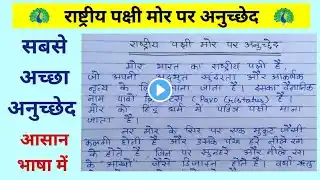 राष्ट्रीय पक्षी मोर पर अनुच्छेद
सबसे
अच्छा
अनुच्छेद
आसान
भाषा में
राष्ट्रीय पक्षी मोर पर अनुच्छेद
मोर भारत का राष्ट्रीय पक्षी है,
जो अपनी अद्भुत सुंदरता और आकर्षक
नृत्य के लिए जाना जाता है। इसका वैज्ञानिक
नाम पावो क्रिस्टेटस (Pavo Cristatus) है।
मोर को हिंदू धर्म में पवित्र पक्षी माना
जाता है।
नर मोर के सिर पर एक मुकुट जैसी
कलगी होती है और इसके पंख हरे नीले रंग
के होते हैं, जिन पर सुनहरे और नीले रंग
के आंखों जैसे डिजाइन होते हैं। वर्षा ऋतु